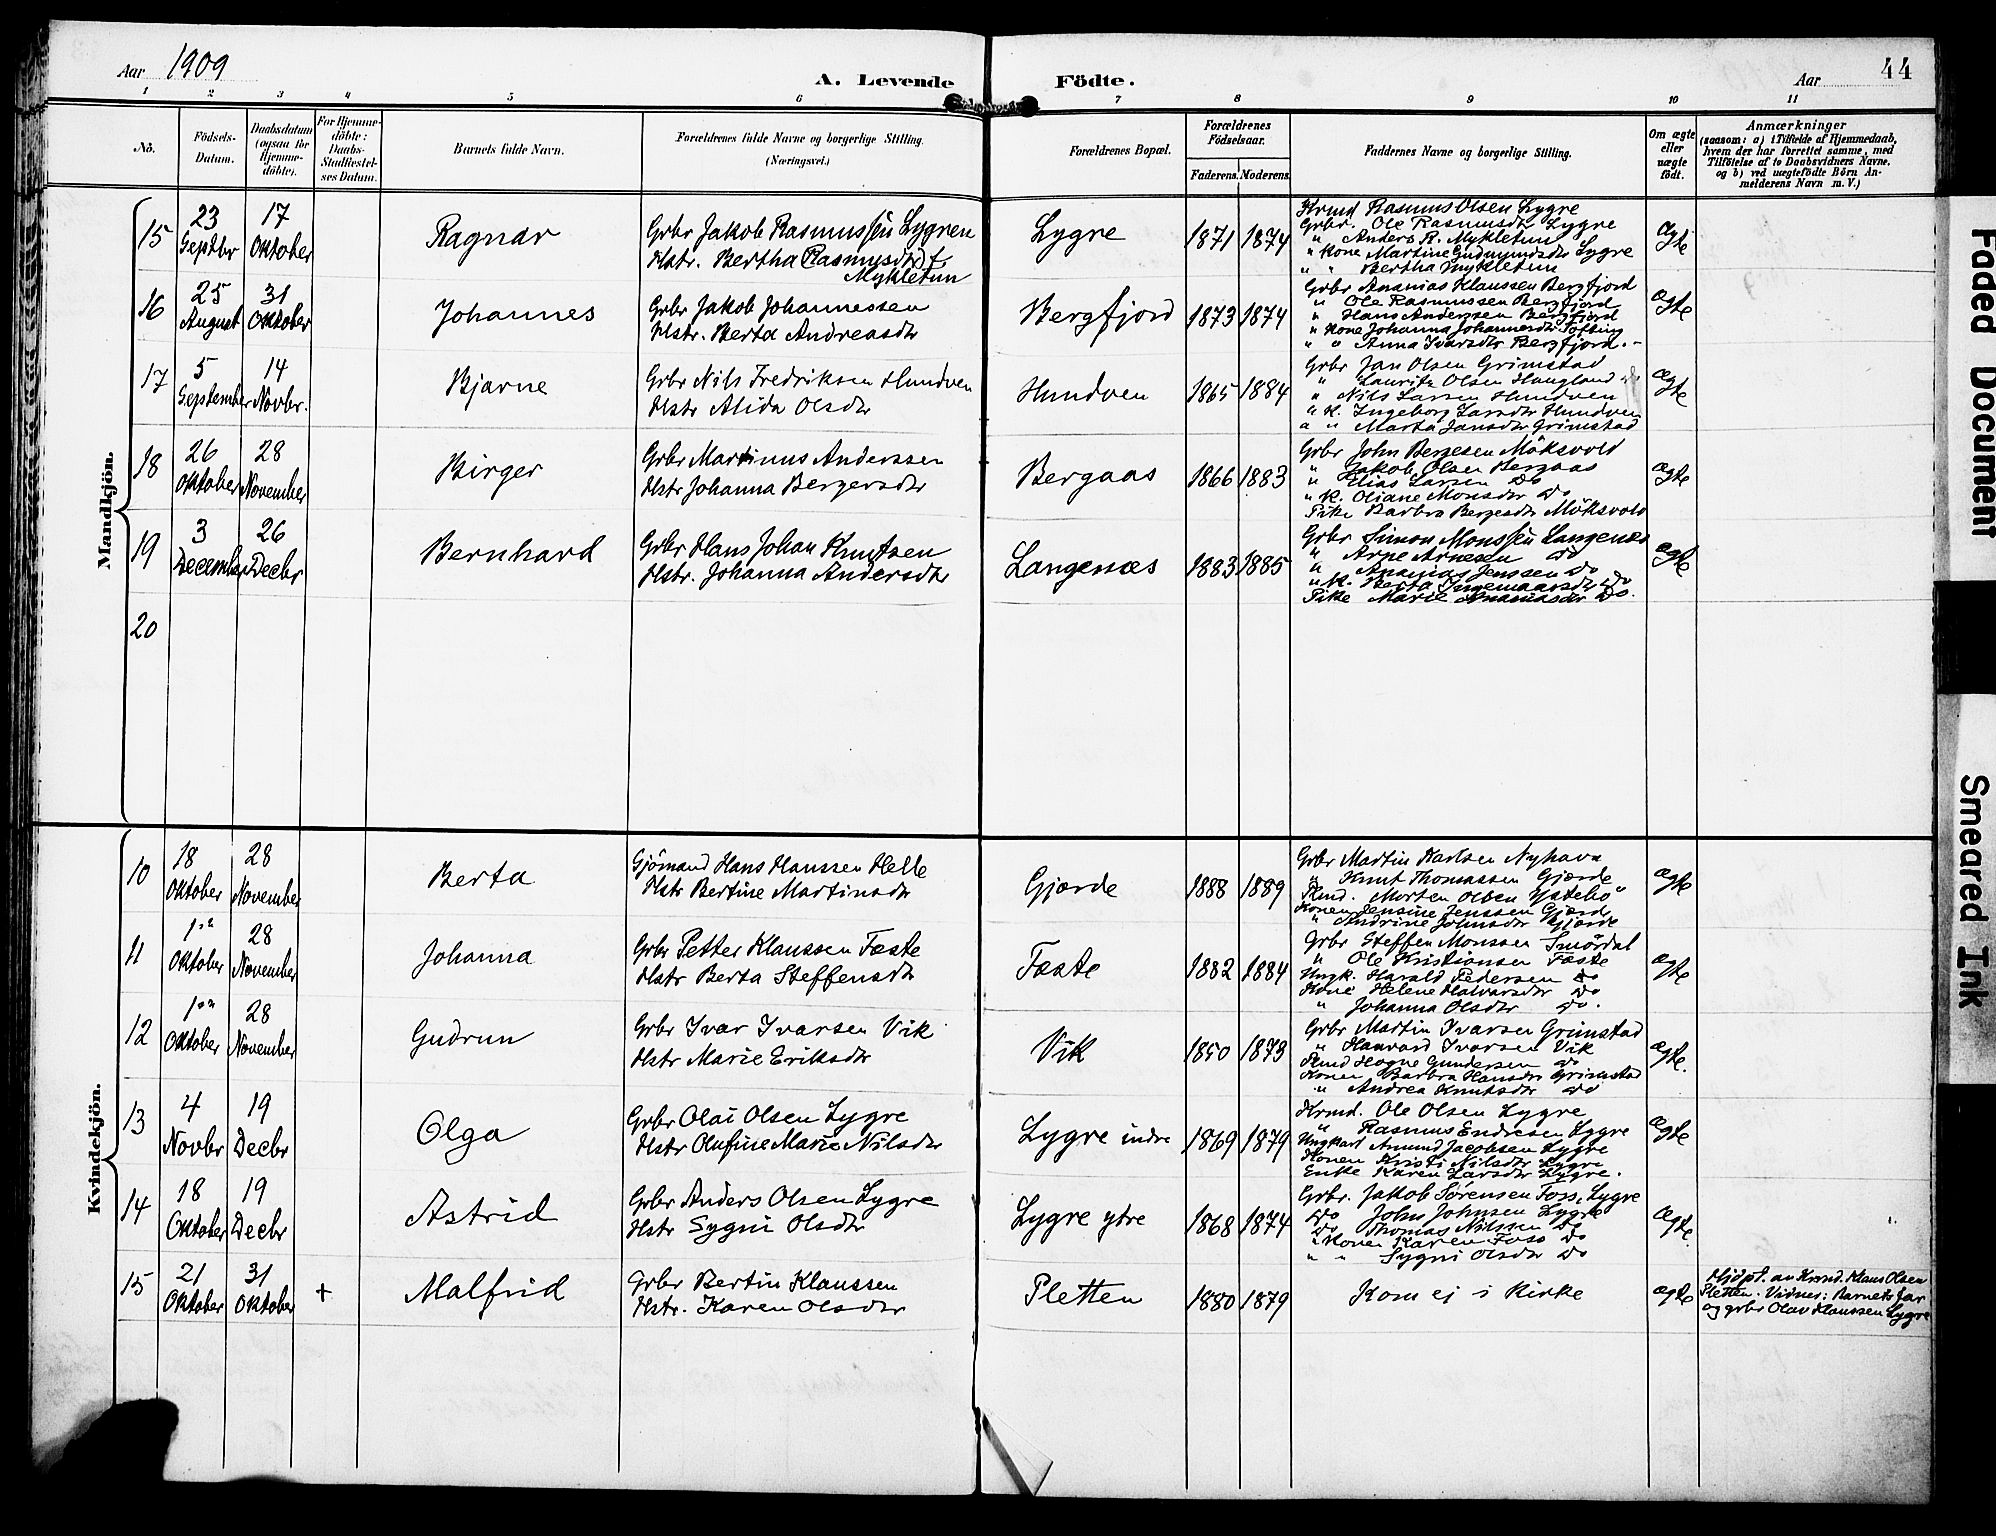 Aar 1909
A. Levende
Födte.
Aar
44
1 2 3 4 5 6 7 8 9 10 11
No.
Födsels-
Datum.
Daabsdatum
(ogsaa for
Hjemme-
döbte).
For Hjemme-
döbte:
Daabs-
Stadfæstel-
ses Datum.
Barnets fulde Navn.
Forældrenes fulde Navne og borgerlige Stilling.
(Næringsvei.)
Forældrenes Bopæl.
Forældrenes
Födselsaar.
Faderens. Moderens.
Faddernes Navne og borgerlige Stilling.
Om ægte
eller
uægte
födt.
Anmærkninger
(saasom: a) i Tilfælde af Hjemmedaab,
hvem der har forrettet samme, med
Tilföielse af to Daabsvidners Navne.
og b) ved uægtefödte Börn An-
melderens Navn m. V.)
Mandkjön.
15
23
Septbr
17
Oktober
Ragnar
Grbr Jakob Rasmussen Lygren
Hstr. Bertha Rasmusdtr f.
Mykletun
Lygre
1871 1874
Krmd Rasmus Olsen Lygre
Grbr. Ole Rasmusdtr Lygre
" Anders R. Mykletun
" Kone Martine Gudmundsdtr Lygre
" " Bertha Mykletun
Ægte
16
25
August
31
Oktober
Johannes
Grbr Jakob Johannessen
Hstr. Berta Andreasdtr
Bergfjord
1873 1874
Grbr Ananias Klaussen Bergfjord
" Ole Rasmussen Bergfjord
" Hans Anderssen Bergfjord
" Kone Johanna Johannesdtr Softing
" " Anna Ivarsdtr Bergfjord.-
Ægte
17
5
September
14
Novbr.
Bjarne
Grbr Nils Fredriksen Hundven
Hstr Alida Olsdtr
Hundven
1865 1884
Grbr Jan Olsen Grimstad
" Lauritz Olsen Haugland
" Nils Larsen Hundven
" K. Ingeborg Larsdtr Hundven
" " Marta Jansdtr Grimstad
Ægte
18
26
Oktober
28
November
Birger
Grbr Martinus Anderssen
Hstr Johanna Bergersdtr
Bergaas
1866 1883
Grbr John Bergesen Möksvold
" Jakob Olsen Bergaas
" Elias Larsen Do
" K. Oliane Monsdtr Do
Pike Barbra Bergesdtr Möksvold
Ægte
19
3
December
26
Decbr
Bernhard
Grbr Hans Johan Knutsen
Hstr. Johanna Andersdtr
Langenæs
1883 1885
Grbr Simon Monssen Langenæs
" Arne Arnesen Do
" Ananias Jenssen Do
" K. Berta Ingemaarsdtr Do
Pike Marie Ananiasdtr Do.
Ægte
20
Kvindekjön.
10
18
Oktober
28
November
Berta
Gjömand Hans Hanssen Helle
Hstr Bertine Martinsdtr
Gjærde
1888 1889
Grbr Martin Karlsen Nyhavn
" Knut Thomassen Gjærde
Krmd. Morten Olsen Ystebö
Konen Jensine Jenssen Gjærd
" Andrine Johnsdtr Gjærde
Ægte
11
1ste
Oktober
28
November
Johanna
Grbr Petter Klaussen Fæste
Hstr Berta Steffensdtr
Fæste
1882 1884
Grbr Steffen Monssen Smördal
" Ole Kristiansen Fæste
Ungk. Harald Pedersen Do
Kone Helene Halvarsdtr Do
" Johanna Olsdtr Do.
Ægte
12
1ste
Oktober
28
November
Gudrun
Grbr Ivar Ivarsen Vik
Hstr Marie Eriksdtr
Vik
1850 1873
Grbr Martin Ivarsen Grimstad
" Haavard Ivarsen Vik
Krmd Hogne Gundersen Do
Konen Barbra Hansdtr Grimstad
" Andrea Knutsdtr Do
Ægte.
13
4
Novbr
19
Decbr
Olga
Grbr Olai Olsen Lygre
Hstr Olufine Marie Nilsdtr
Lygre indre
1869 1879
Krmd. Ole Olsen Lygre
" Rasmus Endresen Lygre
Ungkarl Amund Jacobsen Lygre
Konen Kristi Nilsdtr Lygre
Enke Karen Larsdtr Lygre.
Ægte
14
18
Oktober
19
Decbr
Astrid
Grbr Anders Olsen Lygre
Hstr Sygni Olsdtr
Lygre ytre
1868 1874
Grbr. Jakob Sörensen Foss, Lygre
Do John Johnsen Lygre
Do Thomas Nilssen Do
" Konen Karen Foss Do
" " Sygni Olsdtr Do
Ægte.
15
21
Oktober
31
Oktober
+
Malfrid
Grbr Bertin Klaussen
Hstr. Karen Olsdtr
Pletten
1880 1879
Kom ej i Kirke
ægte
Hjdpt. av Krmd. Klaus Olsen
Pletten. Vidner: Barnets Far
og grbr Olav Hanssen Lygre
Faded Document
Smeared Ink